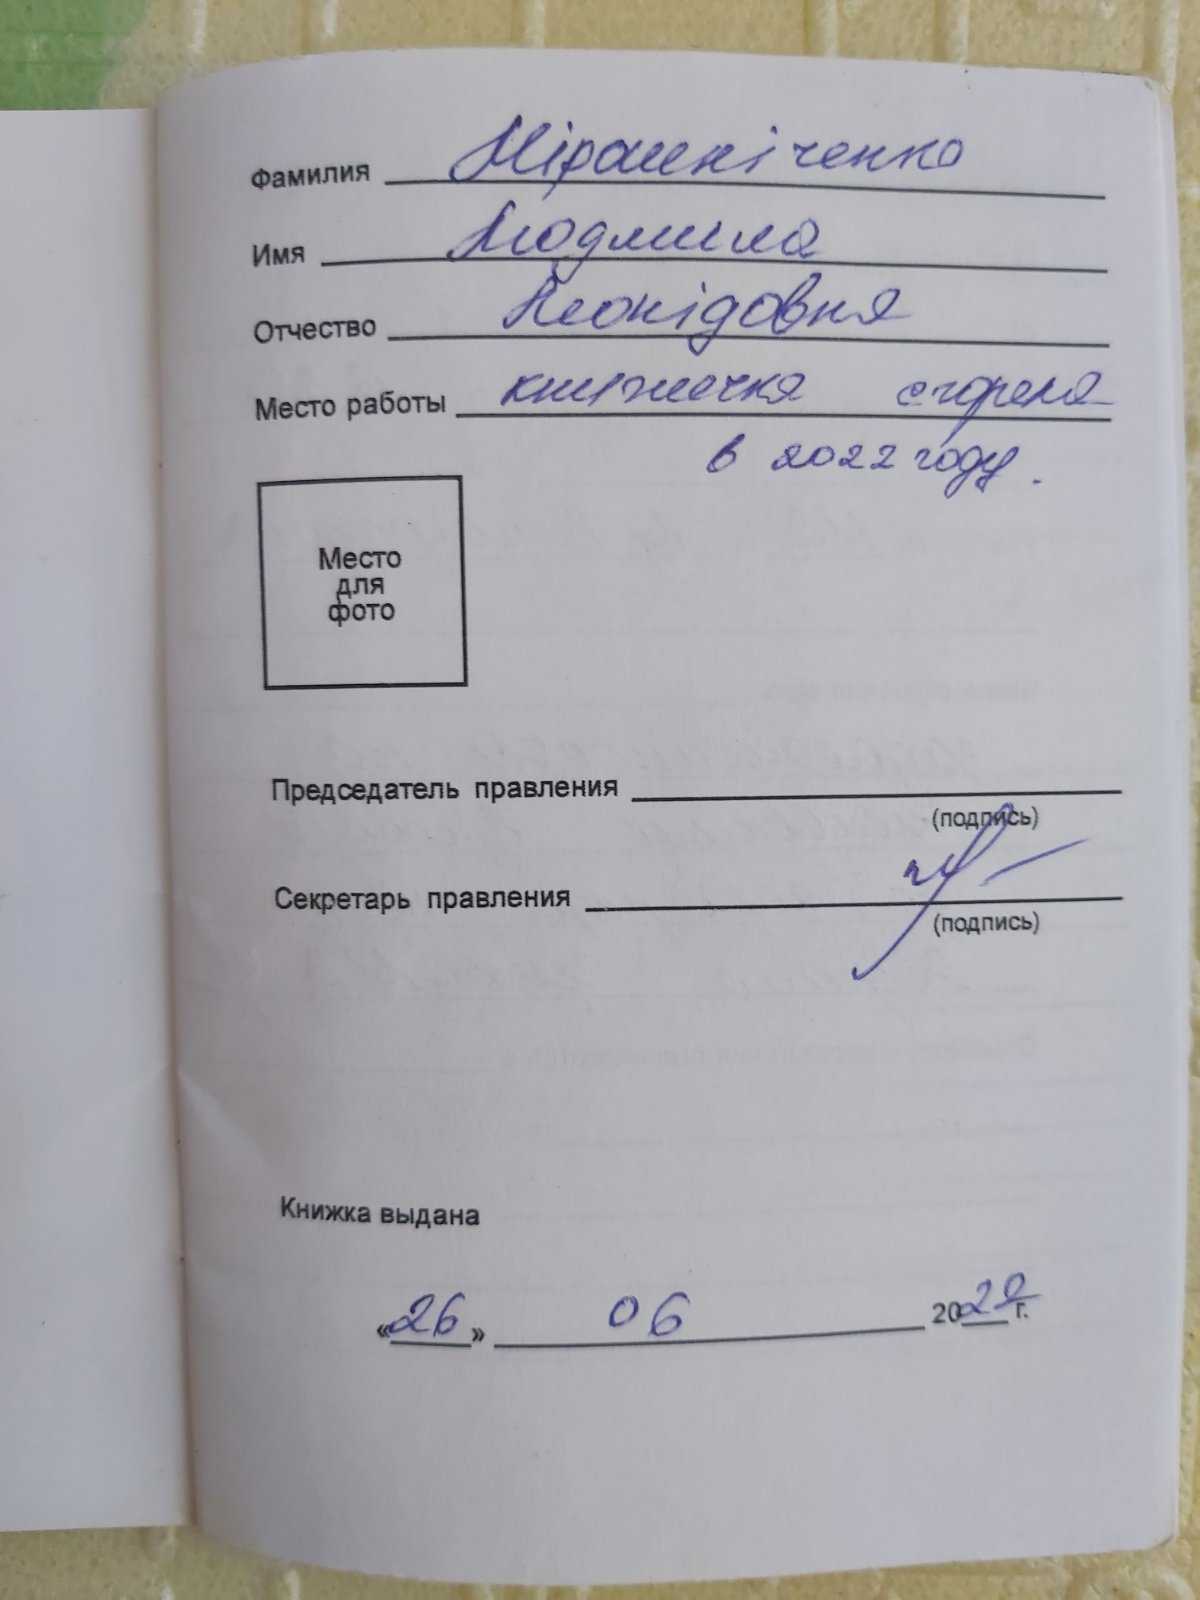 Фамилия Мірошніченко
Имя Людмила
Отчество Леонідовна
Место работы книжечка сгорела
в 2022 году.
Место
для
фото
Председатель правления
(подпись)
Секретарь правления
(подпись)
Книжка выдана
«26» 06 2022 г.